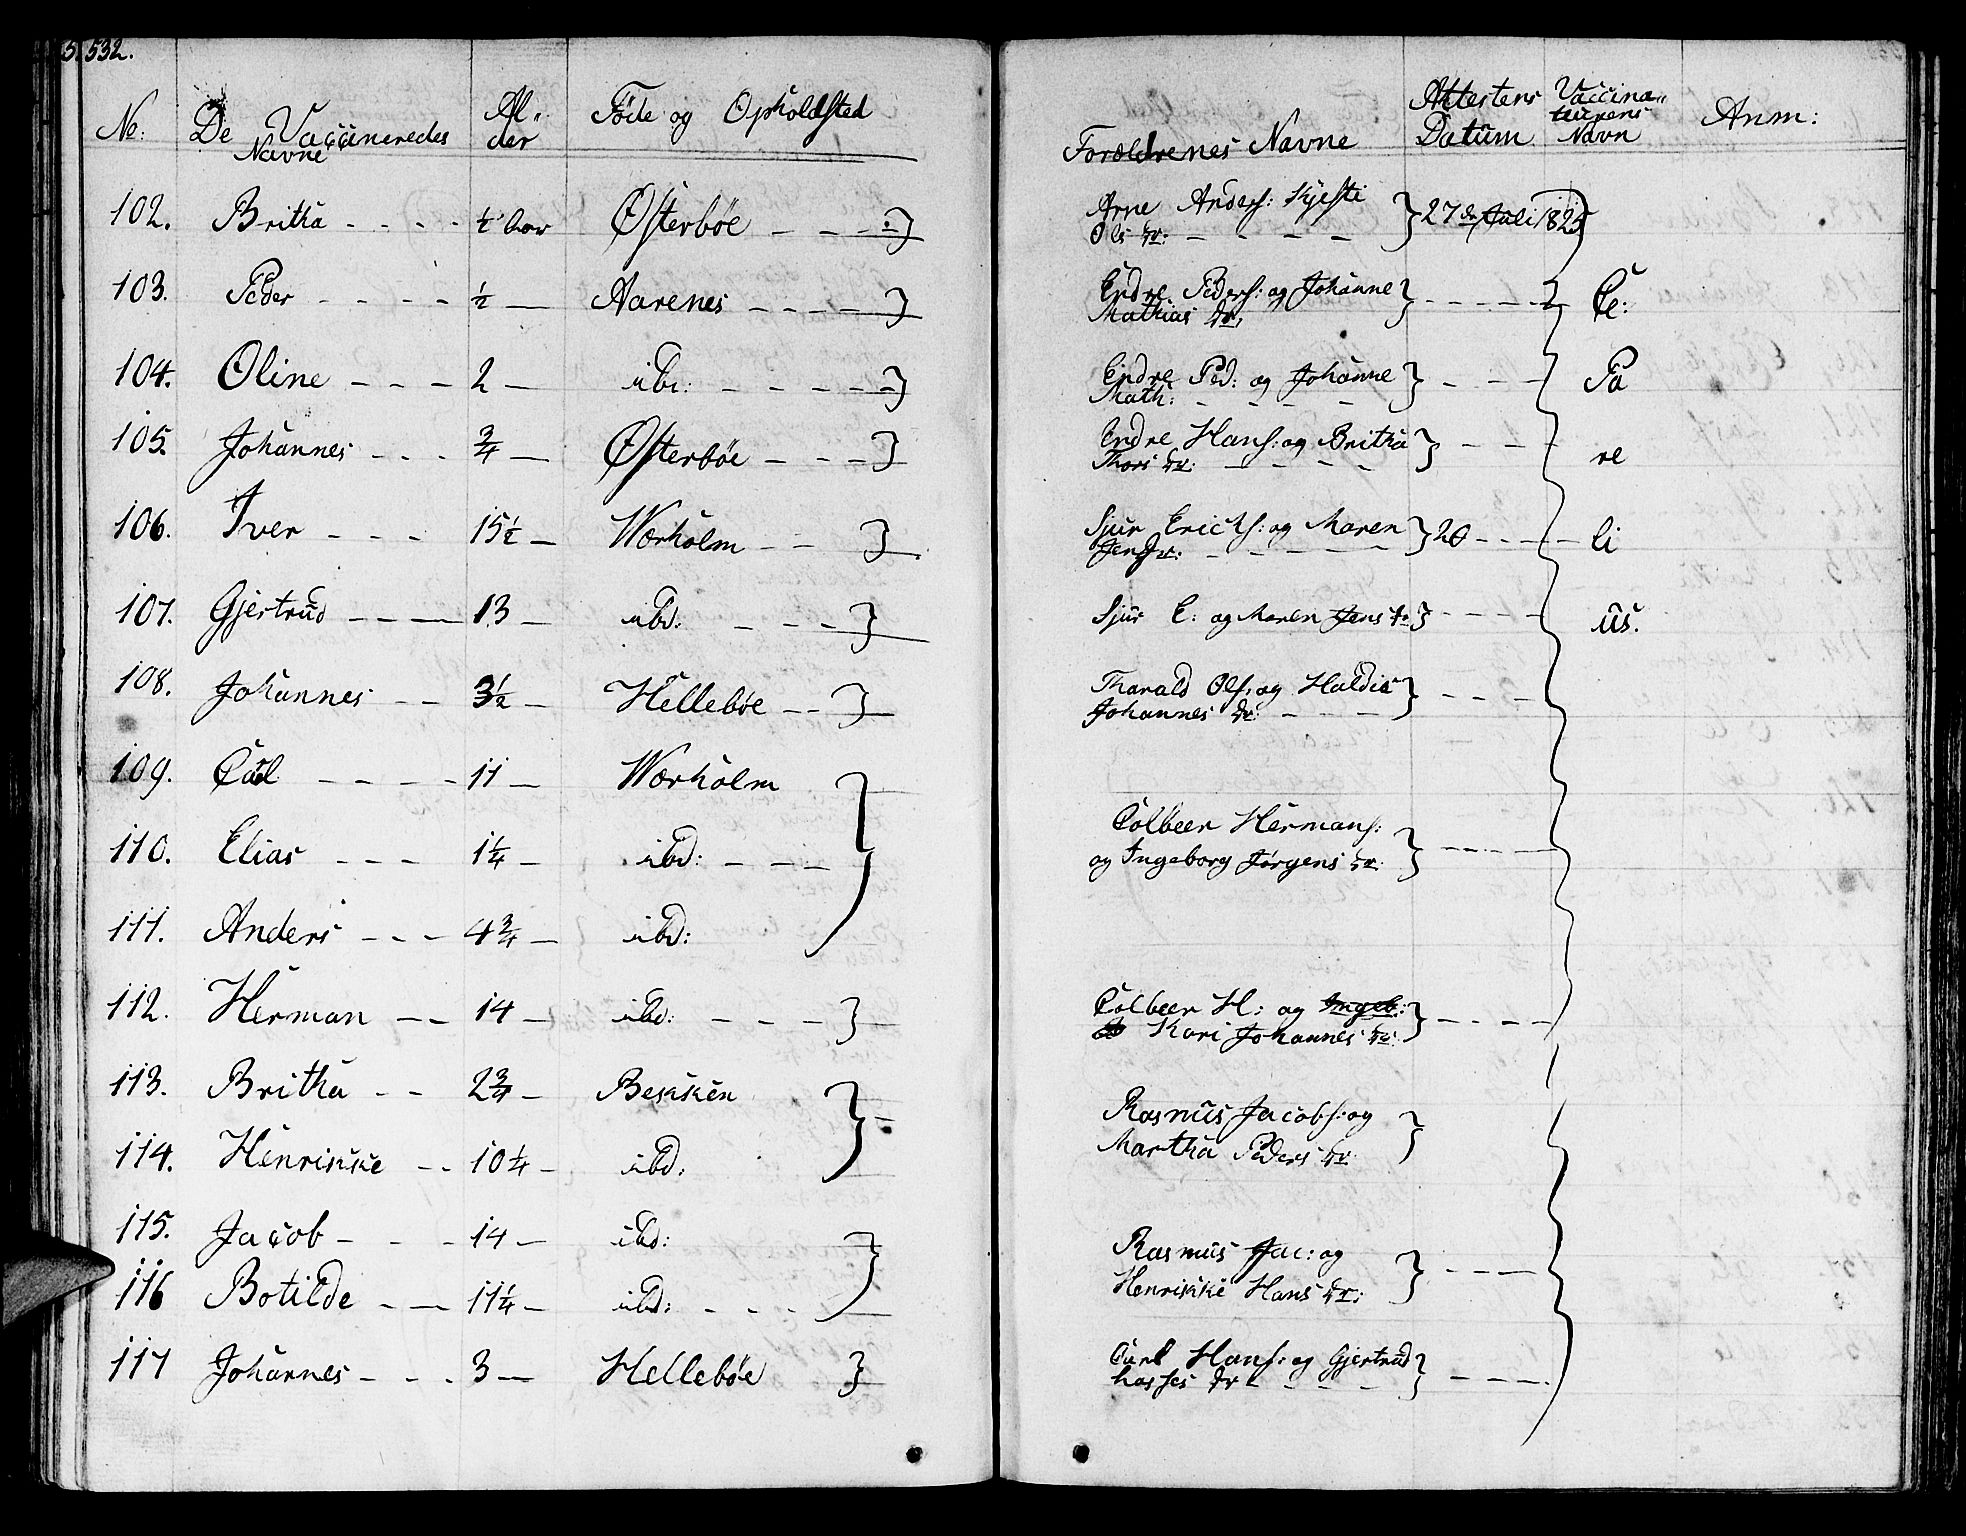 532.
No: De Vaccineredes Navne Al- der Föde og Opholdsted Forældrenes Navne Attestens Datum Vaccina- teurens Navn Anm:
102. Britha - - - - ½ Østerbøe - - - Arne Anders: Kjesti
Ols dr: - - - - 27de Juli 1825
103. Peder - - - - ½ - Aarenes - - - - Endre Peders: og Johanne
Mathias dr: - - - - Ce:
104. Oline - - - 2 - ibd: - - - - - Endre Ped: og Johanne
Math: - - - - - - - Pa
105. Johannes - - - ¾ - Østerbøe - - - Endre Hans: og Britha
Thors dr: - - - - - - - re
106. Iver - - - 15½ - Wærholm - - Sjur Erichs: og Maren
Jens dr: - - - - - 20 - - - - li
107. Gjertrud - - - 13 - ibd: - - - Sjur E: og Maren Jens dr - - - - us.
108. Johannes - - 3½ - Hellebøe - - Tharald Ols: og Haldis
Johannes dr: - - - - - -
109. - - - - 11 - Wærholm
110. Elias - - - 1¼ - ibd: - - - Colbeer Hermans:
og Ingeborg Jörgens dr: - - - -
111. Anders - - - 4¾ - ibd:
112. Herman - - 14 - ibd: - - - - Colbeer H: og Ingeb:
Kari Johannes dr: - - - -
113. Britha - - 2¾ - Bekken
Rasmus Jacobs: og
114. Henrikke - - 10¼ - ibd: Martha Peders dr:
115. Jacob - - - 14 - ibd: Rasmus Jac: og
116 Botilde - - 11¼ - ibd: - - - Henrikke Hans dr: - - - -
117 Johannes - - - 3 - Hellebøe Carl Hans: og Gjertrud
Lasses dr - - - - - - - -